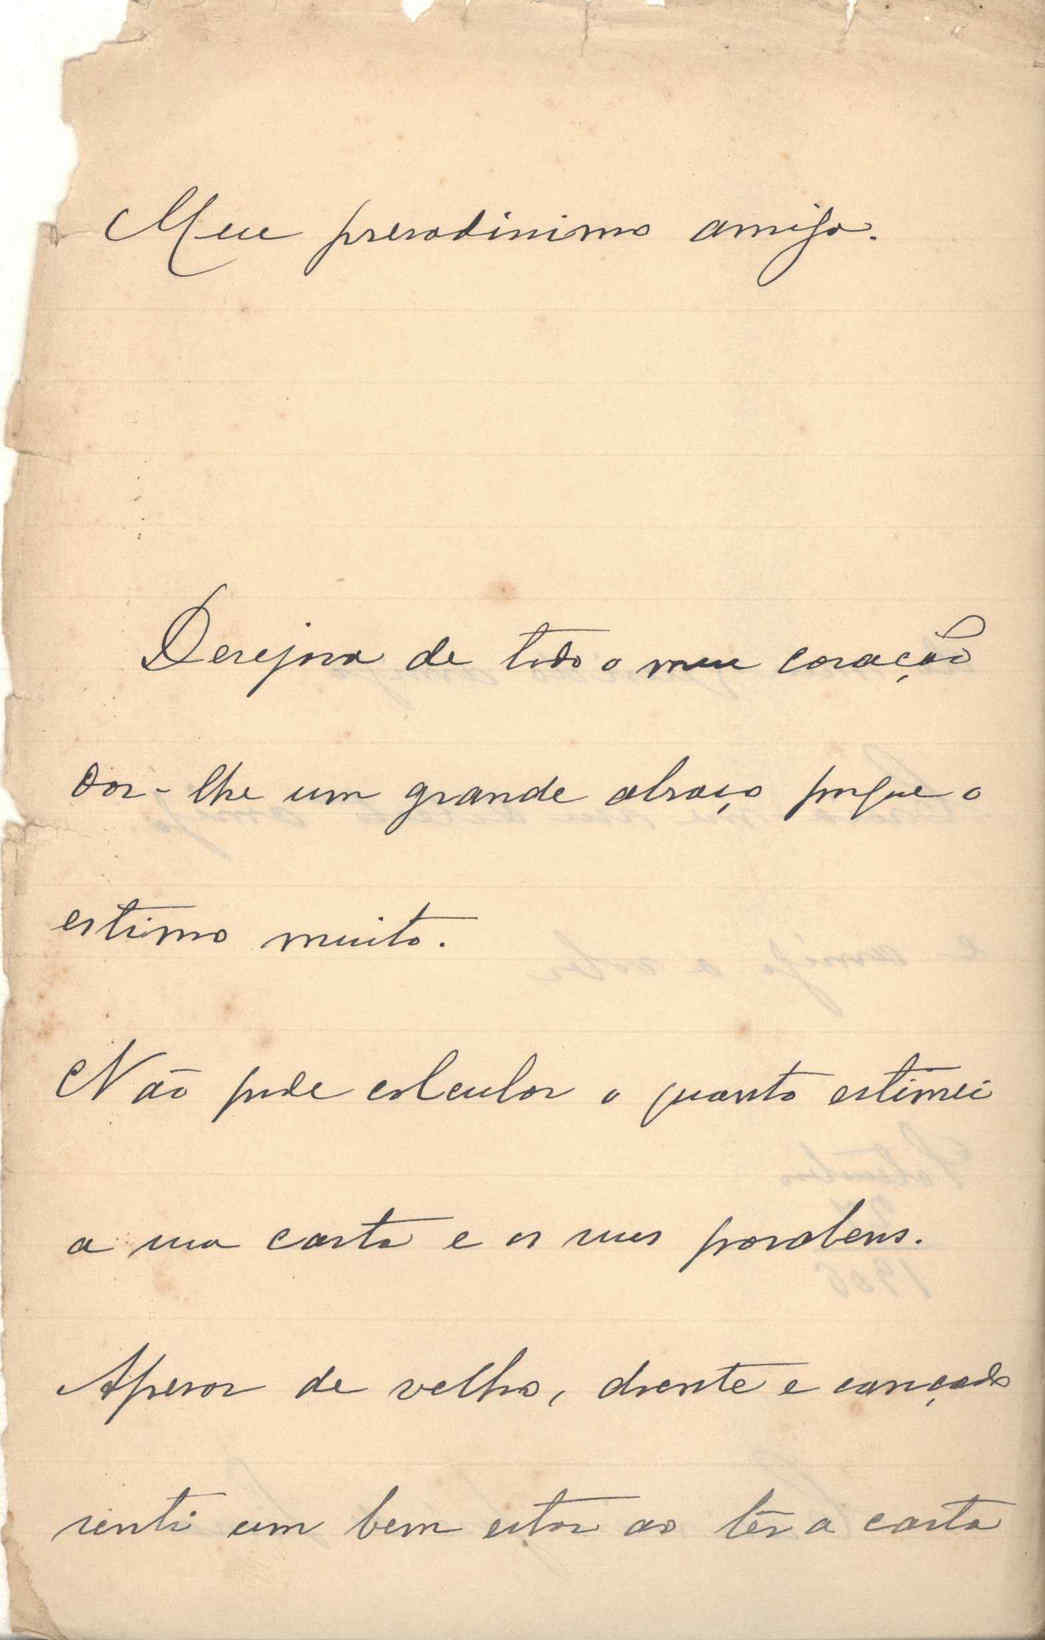 Meu presadissimo amigo.
Desejava de todo o meu coração
dar-lhe um grande abraço porque o
estimo muito.
Não pode calcular o quanto estimei
a sua carta e os seus parabens.
Apesar de velho, doente e cançado
senti um bem estar ao lêr a carta